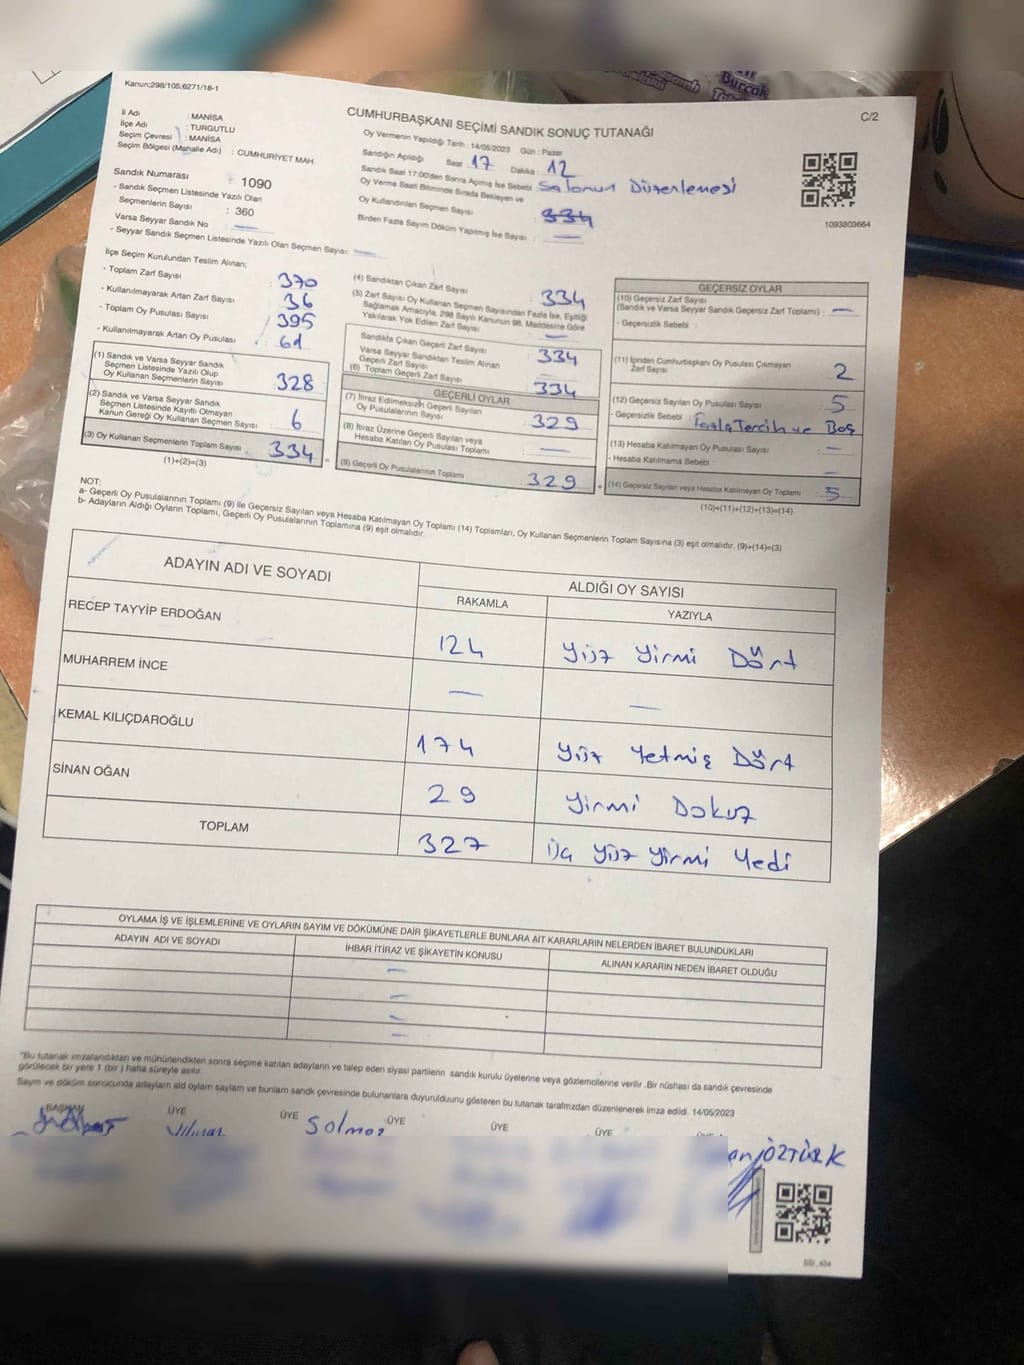 Kanun:298/105,6271/18-1
C/2
CUMHURBAŞKANI SEÇİMİ SANDIK SONUÇ TUTANAĞI
İl Adı : MANİSA
İlçe Adı : TURGUTLU
Seçim Çevresi : MANİSA
Seçim Bölgesi (Mahalle Adı) : CUMHURİYET MAH.
Sandık Numarası : 1090
- Sandık Seçmen Listesinde Yazılı Olan
Seçmenlerin Sayısı : 360
Varsa Seyyar Sandık No : —
- Seyyar Sandık Seçmen Listesinde Yazılı Olan Seçmen Sayısı: —
Oy Vermenin Yapıldığı Tarih : 14/05/2023 Gün : Pazar
Sandığın Açıldığı Saat : 17 Dakika : 12
Sandık Saat 17:00'den Sonra Açılmış İse Sebebi : Salonun Düzenlemesi
Oy Verme Saati Bitiminde Sırada Bekleyen ve
Oy Kullandırılan Seçmen Sayısı : 334
Birden Fazla Sayım Döküm Yapılmış İse Sayısı : —
1093803664
İlçe Seçim Kurulundan Teslim Alınan;
- Toplam Zarf Sayısı : 370
- Kullanılmayarak Artan Zarf Sayısı : 36
- Toplam Oy Pusulası Sayısı : 395
- Kullanılmayarak Artan Oy Pusulası : 61
(1) Sandık ve Varsa Seyyar Sandık
Seçmen Listesinde Yazılı Olup
Oy Kullanan Seçmenlerin Sayısı : 328
(2) Sandık ve Varsa Seyyar Sandık
Seçmen Listesinde Kayıtlı Olmayan
Kanun Gereği Oy Kullanan Seçmen Sayısı : 6
(3) Oy Kullanan Seçmenlerin Toplam Sayısı : 334
(1)+(2)=(3)
(4) Sandıktan Çıkan Zarf Sayısı : 334
(5) Zarf Sayısı Oy Kullanan Seçmen Sayısından Fazla İse, Eşitliği
Sağlamak Amacıyla, 298 Sayılı Kanunun 98. Maddesine Göre
Yakılarak Yok Edilen Zarf Sayısı : —
Sandıkta Çıkan Geçerli Zarf Sayısı : 334
Varsa Seyyar Sandıktan Teslim Alınan
Geçerli Zarf Sayısı : —
(6) Toplam Geçerli Zarf Sayısı : 334
GEÇERLİ OYLAR
(7) İtiraz Edilmeksizin Geçerli Sayılan
Oy Pusulalarının Sayısı : 329
(8) İtiraz Üzerine Geçerli Sayılan veya
Hesaba Katılan Oy Pusulası Toplamı : —
(9) Geçerli Oy Pusulalarının Toplamı : 329
GEÇERSİZ OYLAR
(10) Geçersiz Zarf Sayısı
(Sandık ve Varsa Seyyar Sandık Geçersiz Zarf Toplamı) : —
- Geçersizlik Sebebi :
(11) İçinden Cumhurbaşkanı Oy Pusulası Çıkmayan
Zarf Sayısı : 2
(12) Geçersiz Sayılan Oy Pusulası Sayısı : 5
- Geçersizlik Sebebi : Fazla Tercih ve Boş
(13) Hesaba Katılmayan Oy Pusulası Sayısı : —
- Hesaba Katılmama Sebebi : —
(14) Geçersiz Sayılan veya Hesaba Katılmayan Oy Toplamı : 5
(10)+(11)+(12)+(13)=(14)
NOT:
a- Geçerli Oy Pusulalarının Toplamı (9) ile Geçersiz Sayılan veya Hesaba Katılmayan Oy Toplamı (14) Toplamları, Oy Kullanan Seçmenlerin Toplam Sayısına (3) eşit olmalıdır. (9)+(14)=(3)
b- Adayların Aldığı Oyların Toplamı, Geçerli Oy Pusulalarının Toplamına (9) eşit olmalıdır.
ADAYIN ADI VE SOYADI
ALDIĞI OY SAYISI
RAKAMLA YAZIYLA
RECEP TAYYİP ERDOĞAN 124 Yüz Yirmi Dört
MUHARREM İNCE — —
KEMAL KILIÇDAROĞLU 174 Yüz Yetmiş Dört
SİNAN OĞAN 29 Yirmi Dokuz
TOPLAM 327 Üç Yüz Yirmi Yedi
OYLAMA İŞ VE İŞLEMLERİNE VE OYLARIN SAYIM VE DÖKÜMÜNE DAİR ŞİKAYETLERLE BUNLARA AİT KARARLARIN NELERDEN İBARET BULUNDUKLARI
ADAYIN ADI VE SOYADI İHBAR İTİRAZ VE ŞİKAYETİN KONUSU ALINAN KARARIN NEDEN İBARET OLDUĞU
—
—
—
—
"Bu tutanak imzalandıktan ve mühürlendikten sonra seçime katılan adayların ve talep eden siyasi partilerin sandık kurulu üyelerine veya gözlemcilerine verilir .Bir nüshası da sandık çevresinde
görülecek bir yere 1 (bir ) hafta süreyle asılır.
Sayım ve döküm sonucunda adayların aldı oyların sayıları ve bunların sandık çevresinde bulunanlara duyurulduunu gösteren bu tutanak tarafımızdan düzenlenerek imza edildi. 14/05/2023
BAŞKAN ÜYE ÜYE ÜYE ÜYE ÜYE
Yılmaz Solmaz
ÖZTÜRK
Burcak